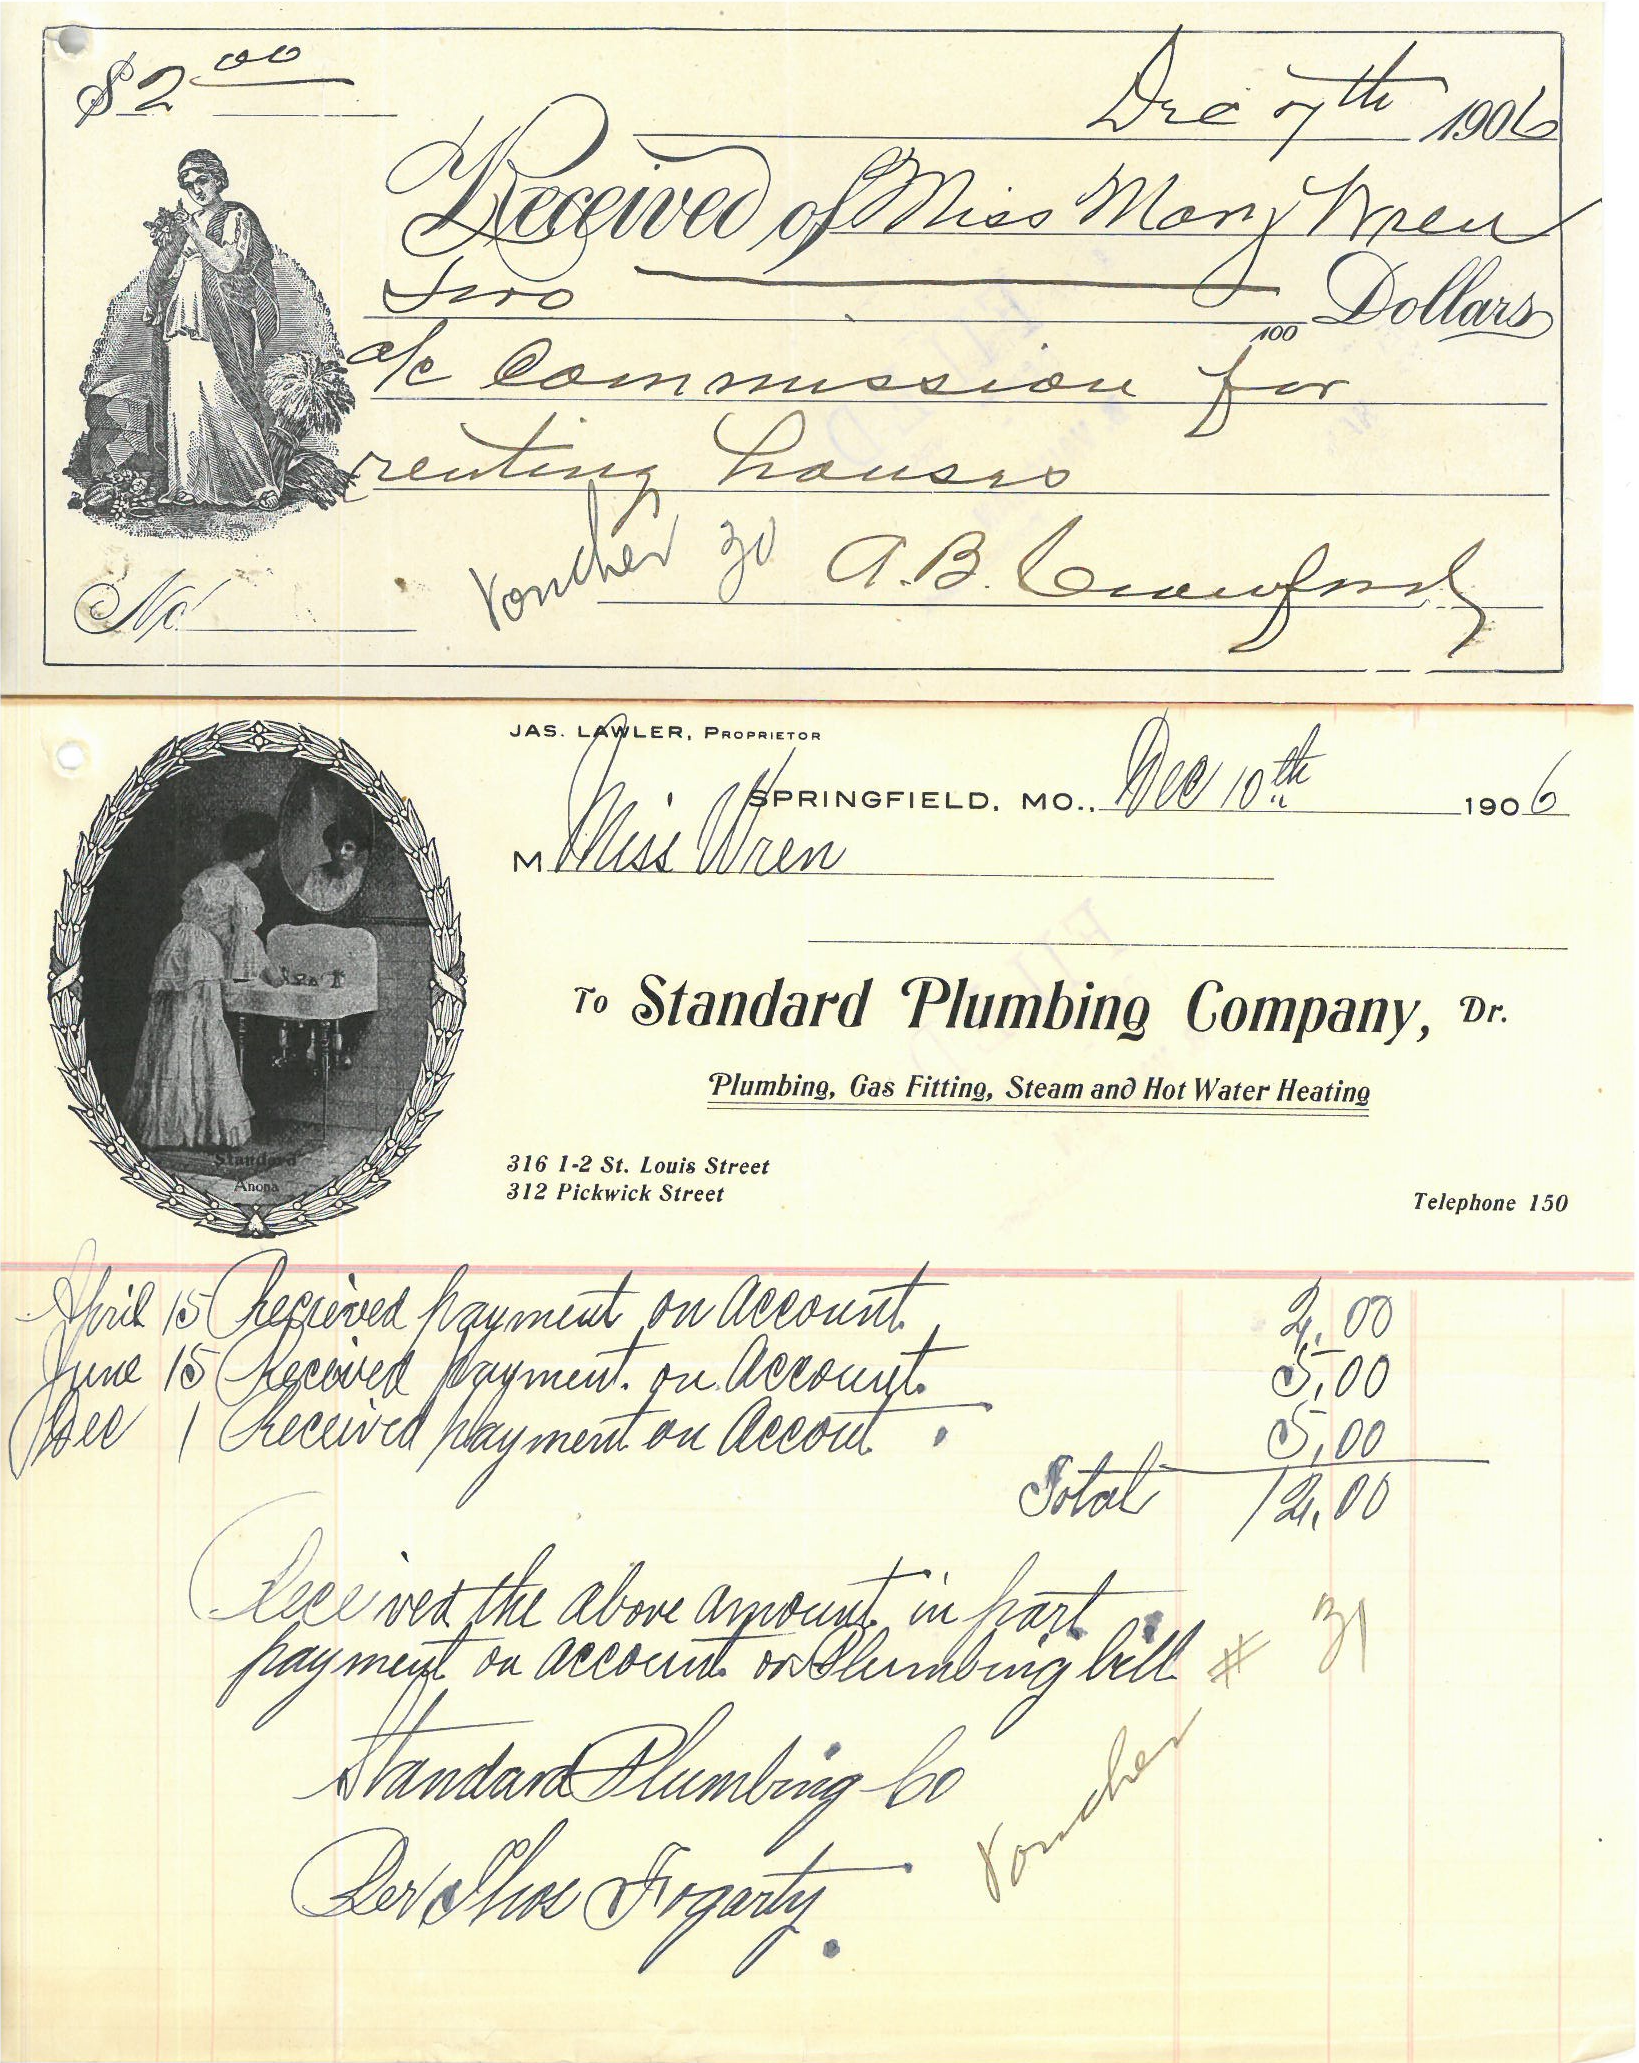 $2 00
Dec 7th 1906
Received of Miss Mary Wren
Two 100 Dollars
a/c Commission for
renting houses
Voucher 30 A.B. Crawford
No
JAS. LAWLER, PROPRIETOR
SPRINGFIELD, MO., Dec 10th 1906
M Miss Wren
To Standard Plumbing Company, Dr.
Plumbing, Gas Fitting, Steam and Hot Water Heating
Standard
Anona
316 1-2 St. Louis Street
312 Pickwick Street
Telephone 150
April 15 Recieved payment on Account. 2.00
June 15 Received payment. on Account. 5.00
Dec 1 Received payment on Accout 5.00
Total 12.00
Received the above amount in part
payment on account on Plumbing bill # 31
Standard Plumbing Co
Voucher
Per Thos Fogarty.